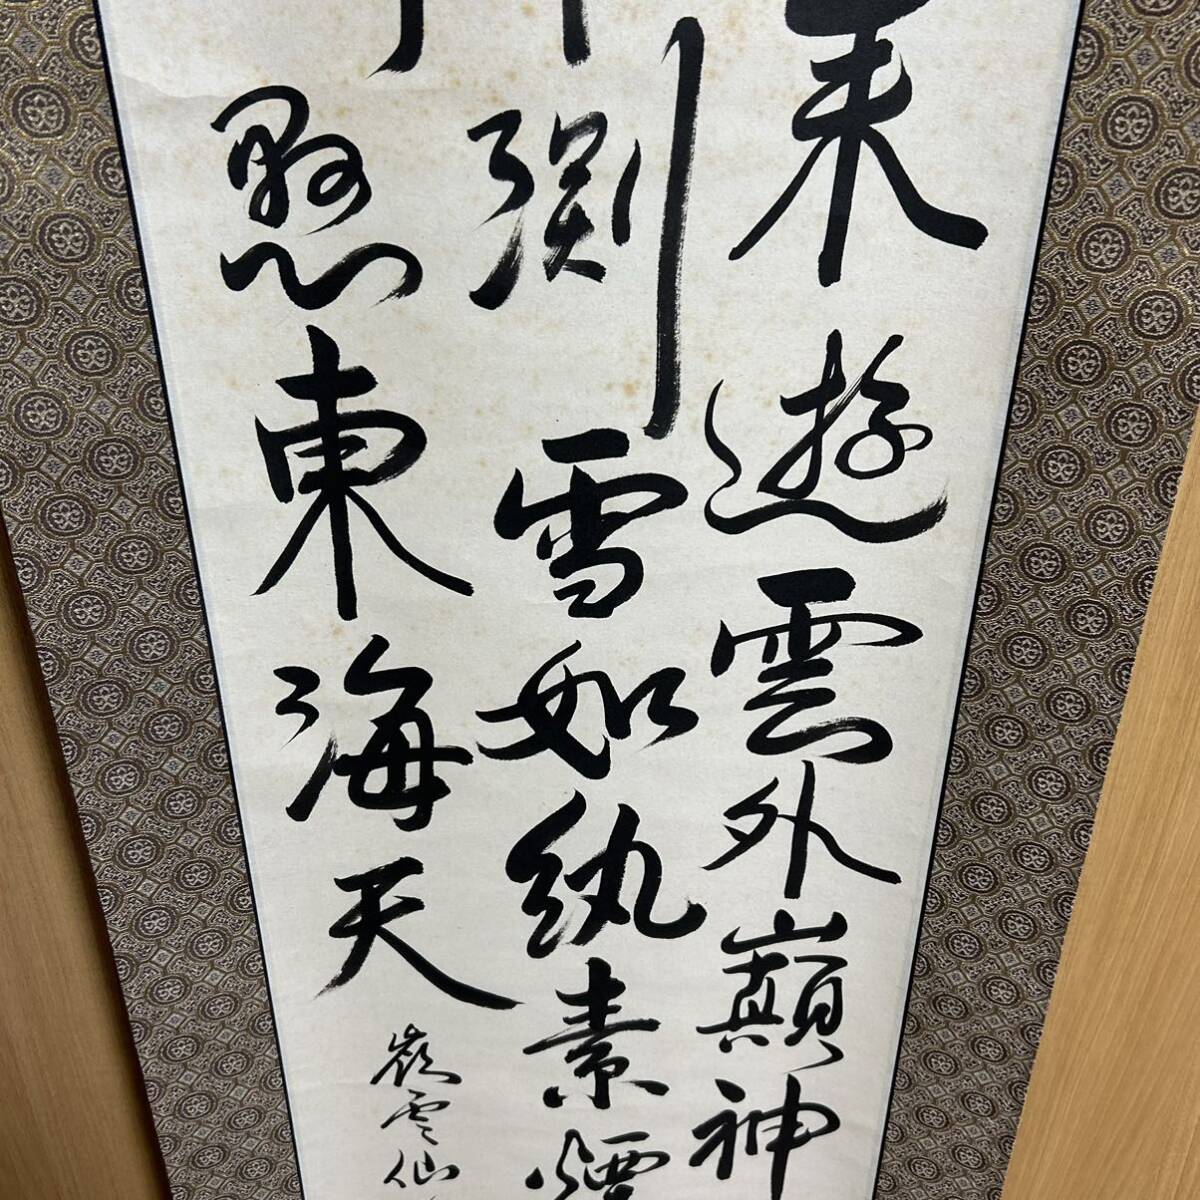 来遊雲外巓神
渕雪如紈素煙
懸東海天
嶺雲仙